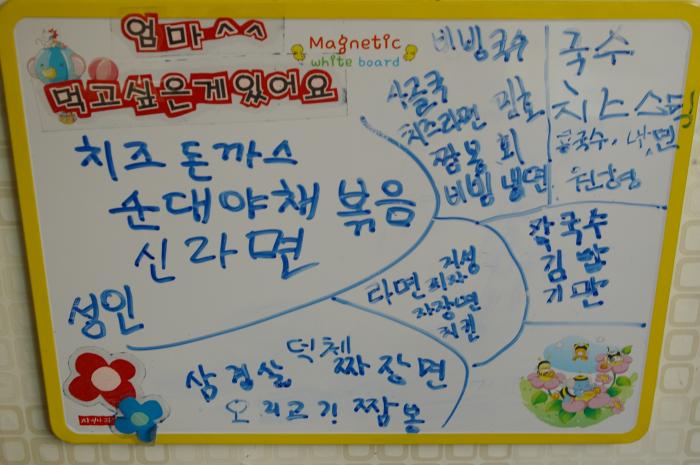 엄마^^
먹고싶은게있어요
Magnetic
white board
치즈돈까스
순대야채볶음
신라면
성인
비빙국수
사골국
치즈라면 민호
짬뽕 회
비빔냉면
국수
치즈스틱
콩국수, 냉면
원형
칼국수
김밥
기만
지성
라면 피자
자장면
치킨
덕체
삼겹살 짜장면
오리고기 짬뽕